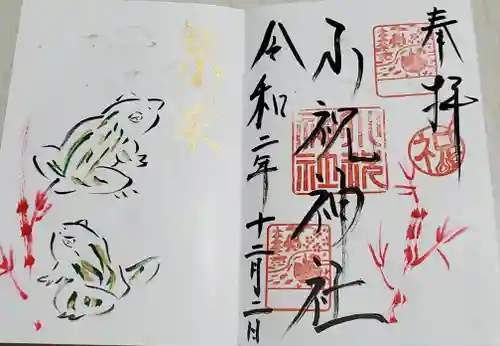 奉拝
小祝神社
令和二年十二月二日